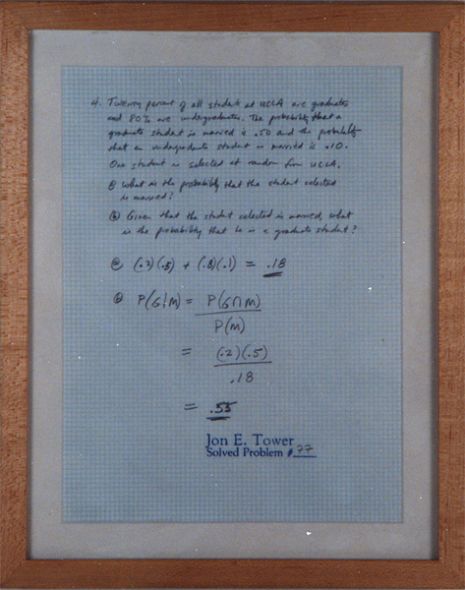 4. Twenty percent of all students at UCLA are graduates
and 80% are undergraduates. The probability that a
graduate student is married is .50 and the probability
that an undergraduate student is married is .10.
One student is selected at random from UCLA.
(a) What is the probability that the student selected
is married?
(b) Given that the student selected is married, what
is the probability that he is a graduate student?
(a) (.2)(.5) + (.8)(.1) = .18
(b) P(G|M) = P(G∩M)
P(M)
= (.2)(.5)
.18
= .55
Jon E. Tower
Solved Problem #77